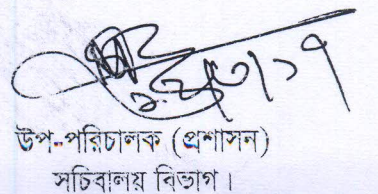 উপ-পরিচালক (প্রশাসন)
সচিবালয় বিভাগ।